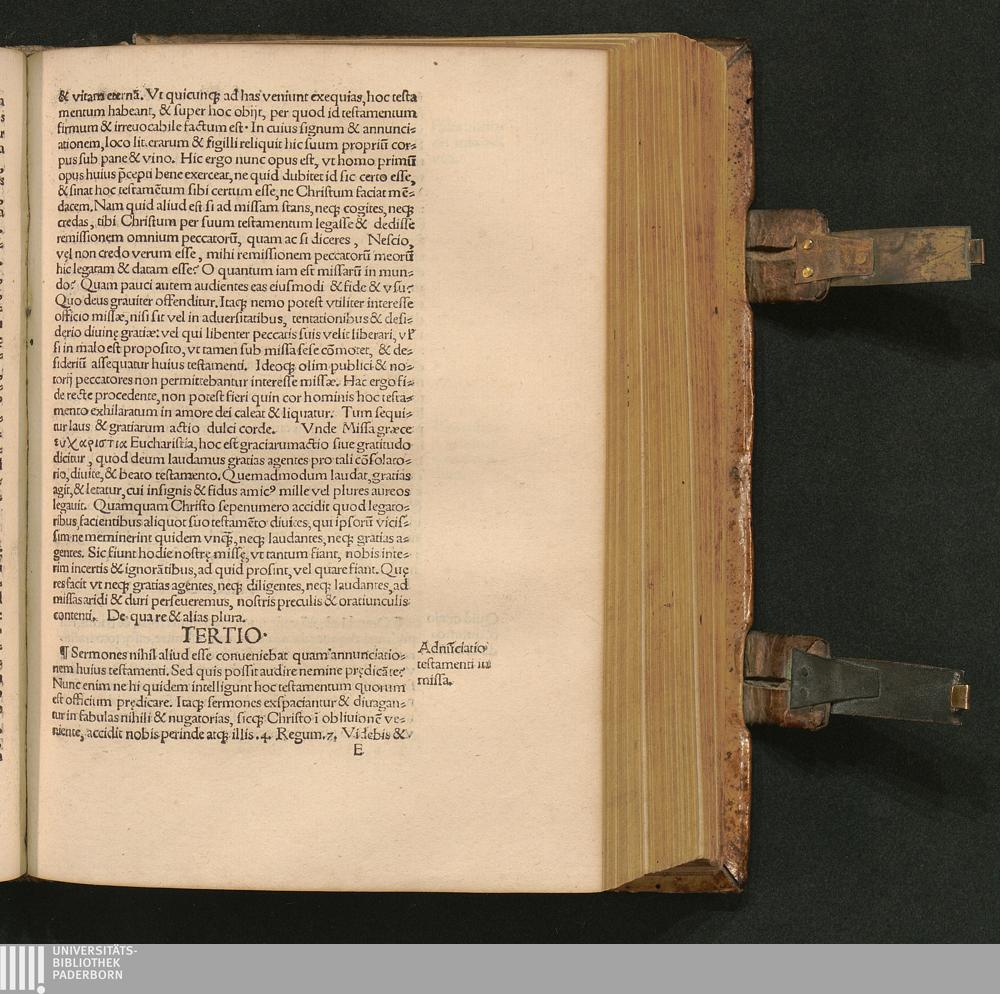 & vitam eternã. Vt quicunqꝫ ad has veniunt exequias, hoc testa
mentum habeant, & super hoc obijt, per quod id testamentum
firmum & irreuocabile factum est. In cuius signum & annunci⸗
ationem, loco literarum & sigilli reliquit hic suum propriũ cor⸗
pus sub pane & vino. Hic ergo nunc opus est, vt homo primũ
opus huius p̃cepti bene exerceat, ne quid dubitet id sic certo esse,
& sinat hoc testamẽtum sibi certum esse, ne Christum faciat mẽ⸗
dacem. Nam quid aliud est si ad missam stans, neqꝫ cogites, neqꝫ
credas, tibi Christum per suum testamentum legasse & dedisse
remissionem omnium peccatorũ, quam ac si diceres, Nescio,
vel non credo verum esse, mihi remissionem peccatorũ meorũ
hic legatam & datam esse? O quantum iam est missarũ in mun⸗
do? Quam pauci autem audientes eas eiusmodi & fide & vsu?
Quo deus grauiter offenditur. Itaqꝫ nemo potest vtiliter interesse
officio missæ, nisi sit vel in aduersitatibus, tentationibus & desi⸗
derio diuinę gratiæ: vel qui libenter peccatis suis velit liberari, vl̃
si in malo est proposito, vt tamen sub missa sese cõmotet, & de⸗
sideriũ assequatur huius testamenti. Ideoqꝫ olim publici & no⸗
torij peccatores non permittebantur interesse missæ. Hac ergo fi⸗
de recte procedente, non potest fieri quin cor hominis hoc testa⸗
mento exhilaratum in amore dei caleat & liquatur. Tum sequi⸗
tur laus & gratiarum actio dulci corde. Vnde Missa græce
ευχαριστια Eucharistia, hoc est graciarumactio siue gratitudo
dicitur, quod deum laudamus gratias agentes pro tali cõsolato⸗
rio, diuite, & beato testamento. Quemadmodum laudat, gratias
agit, & letatur, cui insignis & fidus amicꝰ mille vel plures aureos
legauit. Quamquam Christo sepenumero accidit quod legato⸗
ribus, facientibus aliquot suo testamẽto diuites, qui ipsorũ vicis⸗
sim ne meminerint quidem vnq̃ꝫ, neqꝫ laudantes, neqꝫ gratias a⸗
gentes. Sic fiunt hodie nostrę missę, vt tantum fiant, nobis inte⸗
rim incertis & ignorãtibus, ad quid prosint, vel quare fiant. Quę
res facit vt neqꝫ gratias agẽtes, neqꝫ diligentes, neqꝫ laudantes, ad
missas aridi & duri perseueremus, nostris preculis & oratiunculis
contenti. De qua re & alias plura.
TERTIO.
¶ Sermones nihil aliud esse conueniebat quam annunciatio⸗
nem huius testamenti. Sed quis possit audire nemine prędicãte?
Nunc enim ne hi quidem intelligunt hoc testamentum quorum
est officium prędicare. Itaqꝫ sermones exspaciantur & diuagan⸗
tur in fabulas nihili & nugatorias, sicqꝫ Christo ĩ obliuionẽ ve⸗
niente, accidit nobis perinde atqꝫ illis .4. Regum. 7, Videbis &
E
Adnũciatio
testamenti in
missa.
UNIVERSITÄTS-
BIBLIOTHEK
PADERBORN